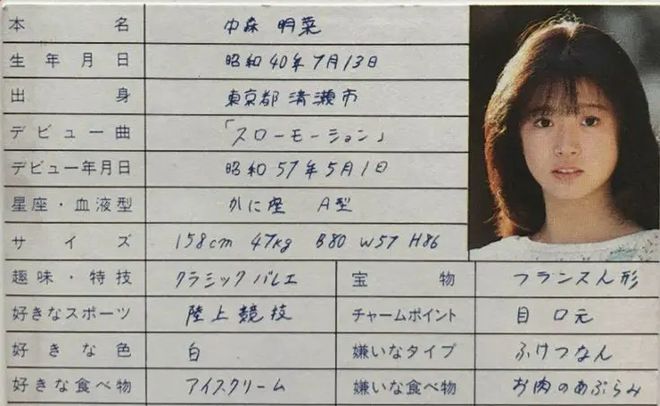 本名 中森 明菜
生年月日 昭和40年7月13日
出身 東京都清瀬市
デビュー曲 「スローモーション」
デビュー年月日 昭和57年5月1日
星座・血液型 かに座 A型
サイズ 158cm 47kg B80 W57 H86
趣味・特技 クラシックバレエ 宝物 フランス人形
好きなスポーツ 陸上競技 チャームポイント 目 口元
好きな色 白 嫌いなタイプ ふけつなん
好きな食べ物 アイスクリーム 嫌いな食べ物 お肉のあぶらみ